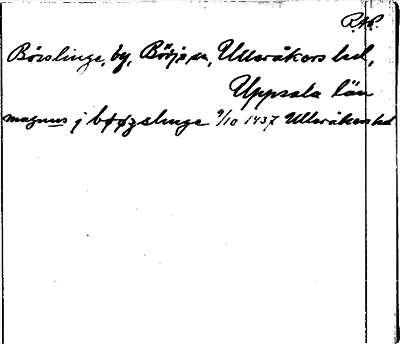 R.A.P.
Börslinge, by, Börje sn, Ulleråkers hd,
Uppsala län
magnus j bøøzslinge 9/10 1437 Ulleråkers hd